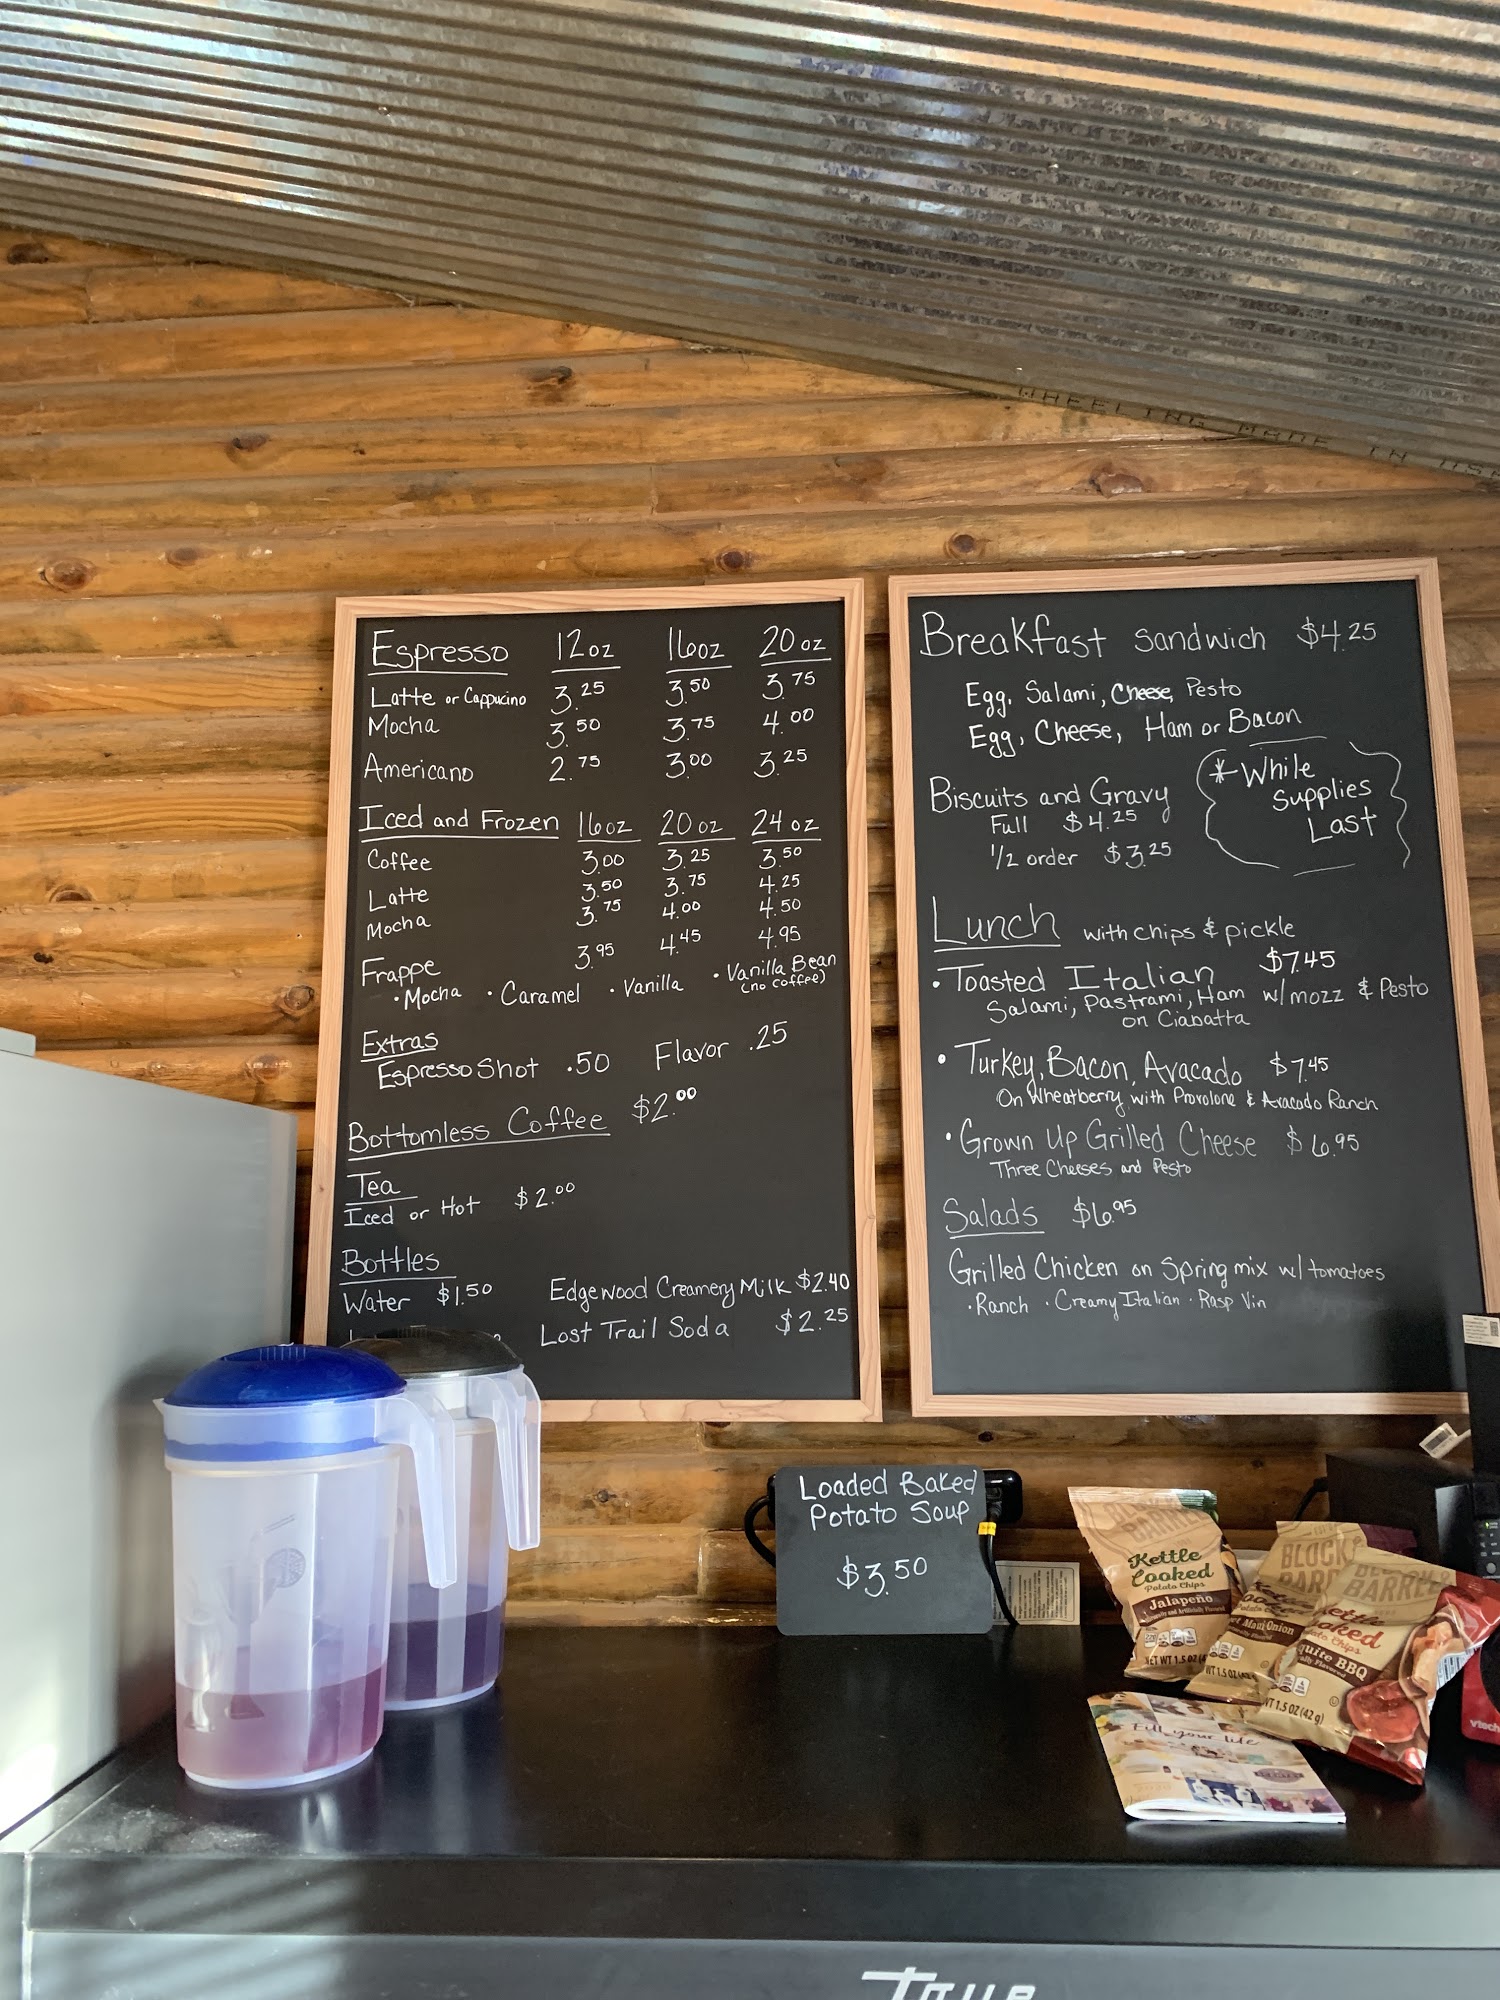 WHEELING MADE IN USA
Espresso 12oz 16oz 20oz
Latte or Cappucino 3.25 3.50 3.75
Mocha 3.50 3.75 4.00
Americano 2.75 3.00 3.25
Iced and Frozen 16oz 20oz 24oz
Coffee 3.00 3.25 3.50
Latte 3.50 3.75 4.25
Mocha 3.75 4.00 4.50
Frappe 3.95 4.45 4.95
• Mocha • Caramel • Vanilla • Vanilla Bean
(no coffee)
Extras
Espresso Shot .50 Flavor .25
Bottomless Coffee $2.00
Tea
Iced or Hot $2.00
Bottles
Water $1.50 Edgewood Creamery Milk $2.40
Lost Trail Soda $2.25
Breakfast Sandwich $4.25
Egg, Salami, Cheese, Pesto
Egg, Cheese, Ham or Bacon
*While
Supplies
Last
Biscuits and Gravy
Full $4.25
1/2 order $3.25
Lunch with chips & pickle
• Toasted Italian $7.45
Salami, Pastrami, Ham w/mozz & Pesto
on Ciabatta
• Turkey, Bacon, Avacado $7.45
On Wheatberry with Provolone & Avacado Ranch
• Grown Up Grilled Cheese $6.95
Three Cheeses and Pesto
Salads $6.95
Grilled Chicken on Spring mix w/ tomatoes
• Ranch • Creamy Italian • Rasp Vin
Loaded Baked
Potato Soup
$3.50
Kettle
Cooked
Potato Chips
Jalapeño
NET WT 1.5 OZ
BLOCK
BARR
Maui Onion
WT 1.5 OZ (42
BARREL
Kettle
ooked
ato Chips
quite BBQ
WT 1.5 OZ (42 g)
Fill your life
vtech
True